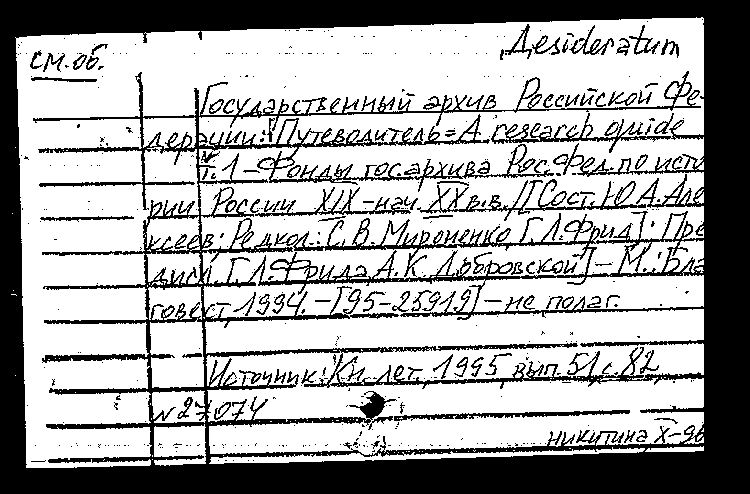 Desideratum
см. об.
Государственный архив Российской Фе-
дерации: Путеводитель = A research guide
Т. 1 - Фонды гос. архива Рос. Фед. по исто
рии России XIX - нач. XX в.в. / [Сост. Ю.А. Але
ксеев; Редкол.: С. В. Мироненко, Г. Л. Фрид]; Пре
дисл. Г. Л. Фрида, А. К. Добровской] - М.: Бла
говест, 1994. - [95-25919] - не полаг.
Источник: Кн. лет., 1995, вып. 51, с. 82,
№ 27074
никитина, X-96